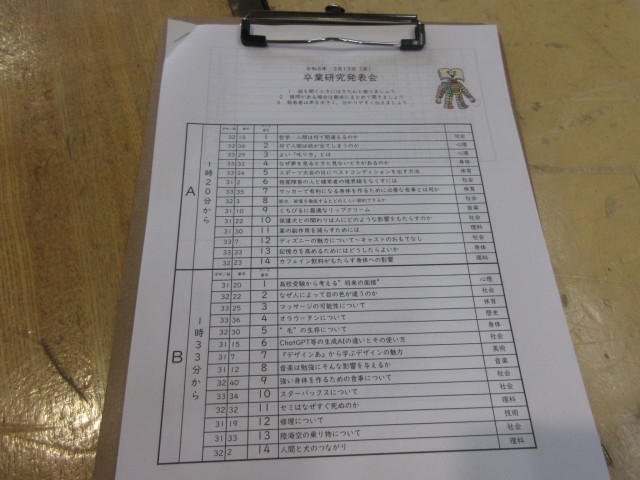 卒業研究発表会
A
1時20分から
32 15 1 哲学・人間は何で間違えるのか 社会
32 36 2 何で人間は欲が出てしまうのか 心理
33 29 3 よい「叱り方」とは 心理
33 32 4 なぜ夢を見るときと見ないときがあるのか 身体
33 24 5 スポーツ大会の日にベストコンディションを出す方法 体育
31 2 6 視覚障害の人と健常者の境界線をなくすには 社会
33 35 7 サッカーで有利になる身体を作るために必要な食事とは何か 体育
32 3 8 社会
31 10 9 くちびるに最適なリップクリーム 音楽
31 22 10 保護犬との関わりは人にどのような影響をもたらすのか 社会
31 30 11 薬の副作用を減らすためには 理科
33 7 12 ディズニーの魅力について~キャストのおもてなし 社会
33 33 13 記憶力を高めるためにはどうしたらよいか 身体
32 23 14 カフェイン飲料がもたらす身体への影響 理科
B
1時33分から
31 20 1 高校受験から考える"将来の面接" 心理
32 22 2 なぜ人によって目の色が違うのか 社会
33 25 3 マッサージの可能性について 体育
33 36 4 オラウータンについて 歴史
32 30 5 "毛"の生存について 身体
31 15 6 ChatGPT等の生成AIの違いとその使い方 社会
31 7 7 『デザインあ』から学ぶデザインの魅力 美術
31 12 8 音楽は勉強にそんな影響を与えるか 音楽
32 40 9 強い身体を作るための食事について 社会
33 34 10 スターバックスについて 社会
32 32 11 セミはなぜすぐ死ぬのか 理科
31 19 12 修理について 技術
31 33 13 陸海空の乗り物について 社会
32 2 14 人間と犬のつながり 理科